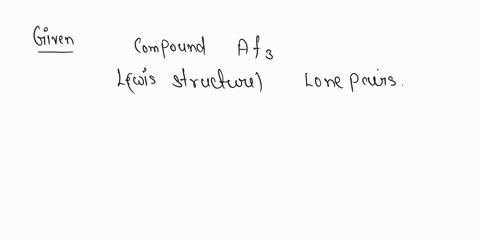 Given Compound Af3
Lewis structure) Lone pairs.